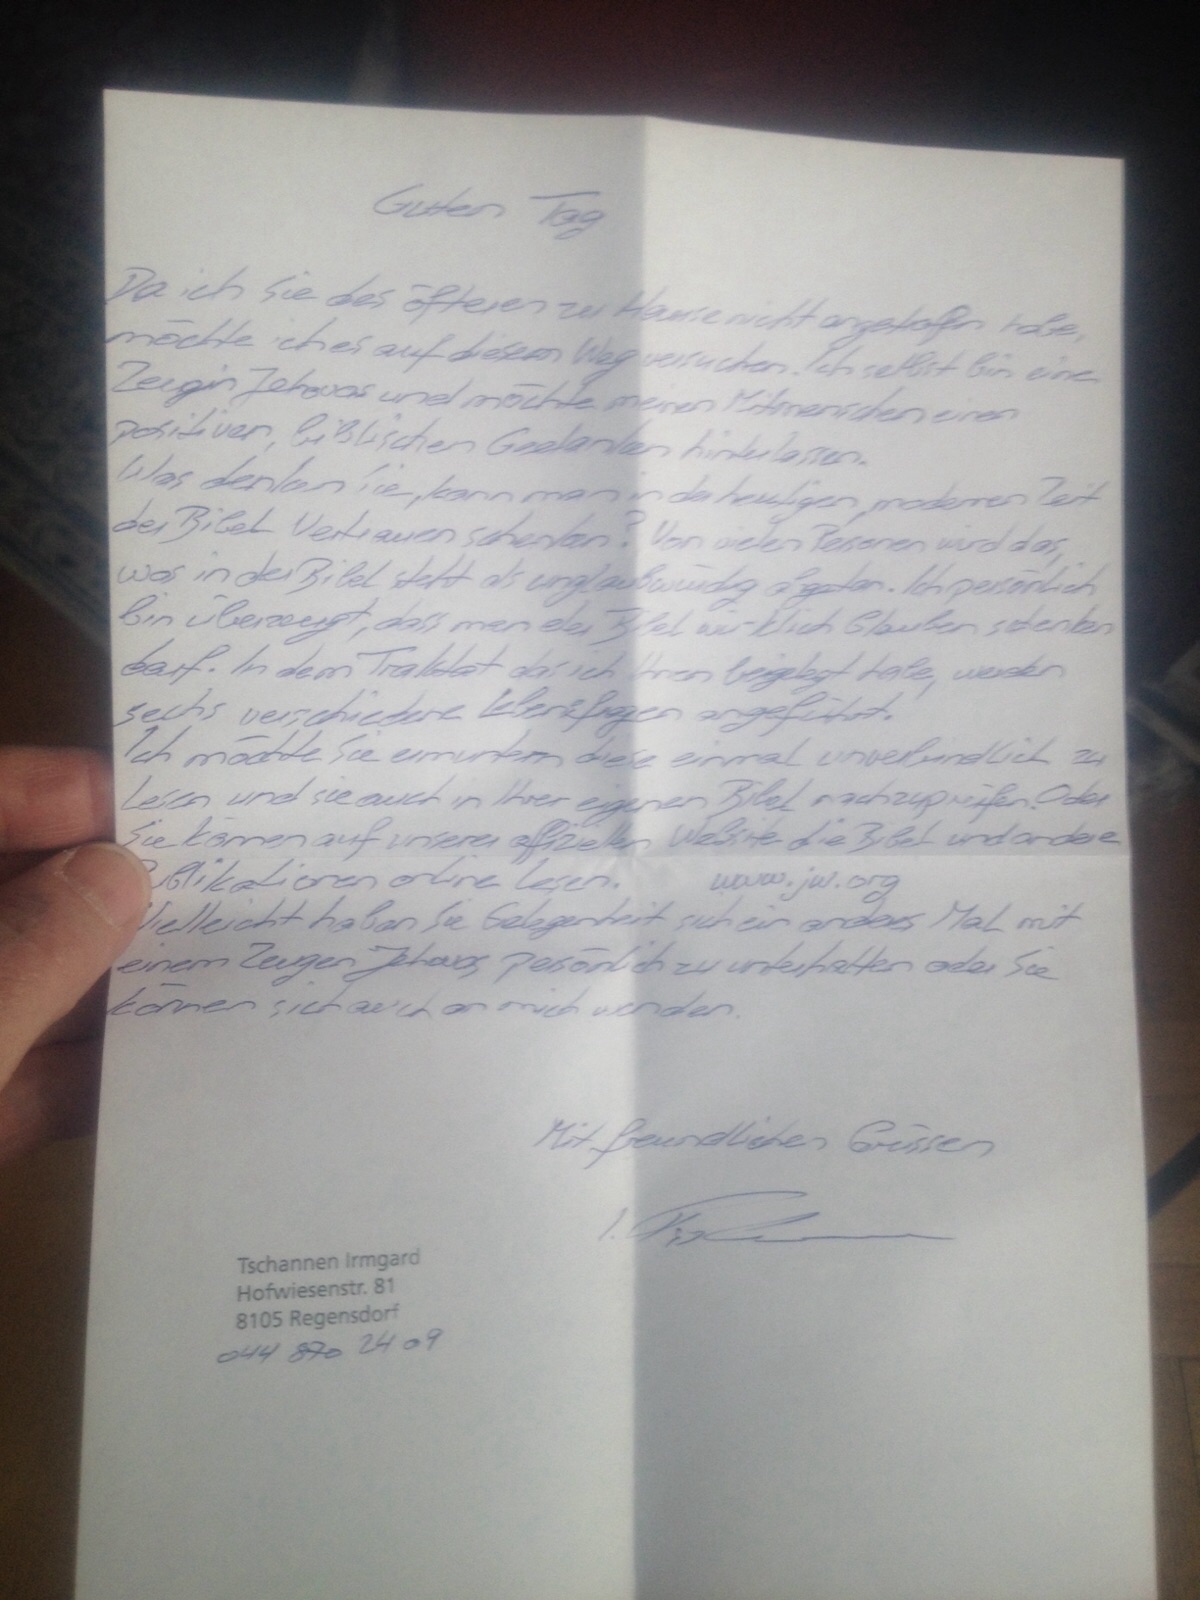 Guten Tag
Da ich Sie des öfteren zu Hause nicht angetroffen habe,
möchte ich es auf diesem Weg versuchen. Ich selbst bin eine
Zeugin Jehovas und möchte meinen Mitmenschen einen
positiven, biblischen Gedanken hinterlassen.
Was denken Sie, kann man in der heutigen, modernen Zeit
der Bibel Vertrauen schenken? Von vielen Personen wird das,
was in der Bibel steht als unglaubwürdig abgetan. Ich persönlich
bin überzeugt, dass man der Bibel wirklich Glauben schenken
darf. In dem Traktat das ich Ihnen beigelegt habe, werden
sechs verschiedene Lebensfragen angeführt.
Ich möchte Sie ermuntern diese einmal unverbindlich zu
lesen und sie auch in Ihrer eigenen Bibel nachzuprüfen. Oder
Sie können auf unserer offiziellen Website die Bibel und andere
Publikationen online lesen. www.jw.org
Vielleicht haben Sie Gelegenheit sich ein anderes Mal mit
einem Zeugen Jehovas persönlich zu unterhalten oder Sie
können sich auch an mich wenden.
Mit freundlichen Grüssen
Tschannen Irmgard
Hofwiesenstr. 81
8105 Regensdorf
044 870 24 09